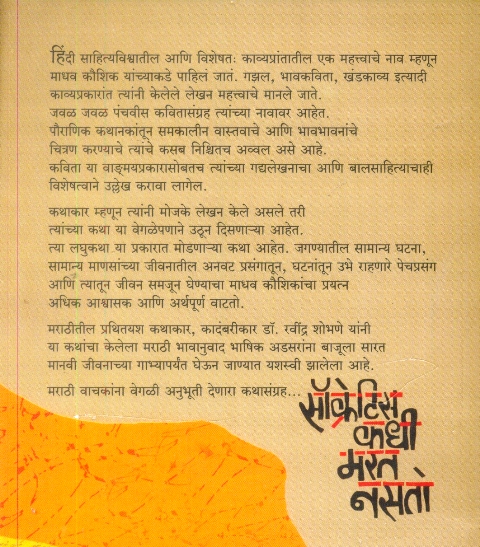 हिंदी साहित्यविश्वातील आणि विशेषतः काव्यप्रांतातील एक महत्त्वाचे नाव म्हणून
माधव कौशिक यांच्याकडे पाहिलं जातं. गझल, भावकविता, खंडकाव्य इत्यादी
काव्यप्रकारांत त्यांनी केलेले लेखन महत्त्वाचे मानले जाते.
जवळ जवळ पंचवीस कवितासंग्रह त्यांच्या नावावर आहेत.
पौराणिक कथानकांतून समकालीन वास्तवाचे आणि भावभावनांचे
चित्रण करण्याचे त्यांचे कसब निश्चितच अव्वल असे आहे.
कविता या वाङ्मयप्रकारासोबतच त्यांच्या गद्यलेखनाचा आणि बालसाहित्याचाही
विशेषत्वाने उल्लेख करावा लागेल.
कथाकार म्हणून त्यांनी मोजके लेखन केले असले तरी
त्यांच्या कथा या वेगळेपणाने उठून दिसणाऱ्या आहेत.
त्या लघुकथा या प्रकारात मोडणाऱ्या कथा आहेत. जगण्यातील सामान्य घटना,
सामान्य माणसांच्या जीवनातील अनवट प्रसंगातून, घटनांतून उभे राहणारे पेचप्रसंग
आणि त्यातून जीवन समजून घेण्याचा माधव कौशिकांचा प्रयत्न
अधिक आश्वासक आणि अर्थपूर्ण वाटतो.
मराठीतील प्रथितयश कथाकार, कादंबरीकार डॉ. रवींद्र शोभणे यांनी
या कथांचा केलेला मराठी भावानुवाद भाषिक अडसरांना बाजूला सारत
मानवी जीवनाच्या गाभ्यापर्यंत घेऊन जाण्यात यशस्वी झालेला आहे.
मराठी वाचकांना वेगळी अनुभूती देणारा कथासंग्रह...
सॉक्रेटिस
कधी
मरत
नसतो